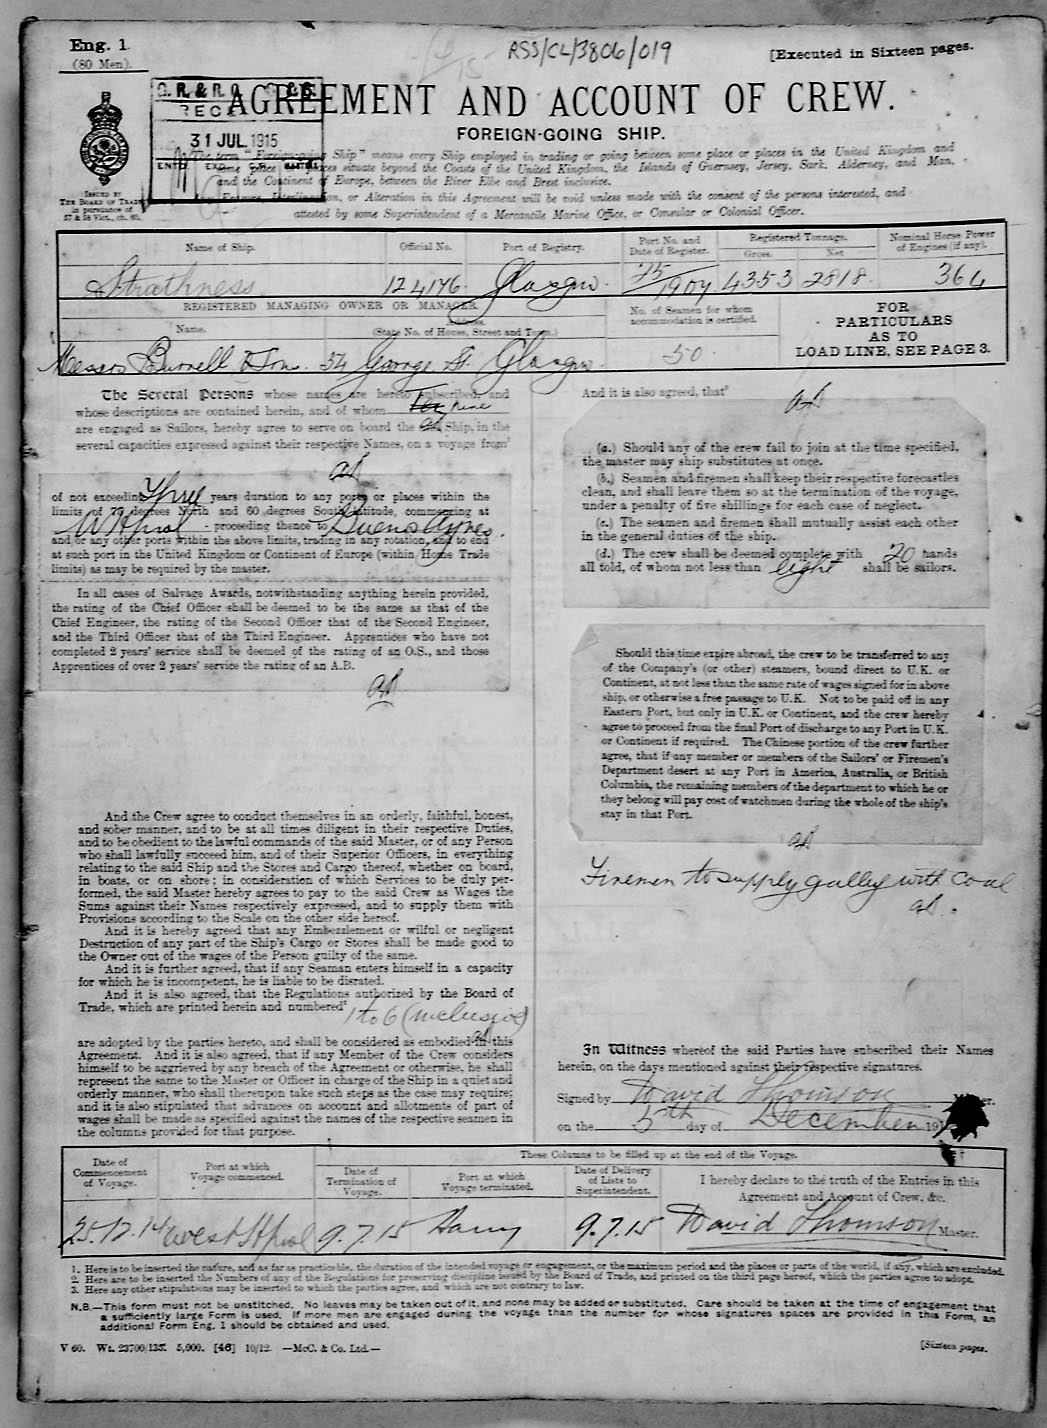 Eng. 1
(80 Men).
RSS/CL/3806/019
[Executed in Sixteen pages.
31 JUL.1915
AGREEMENT AND ACCOUNT OF CREW.
FOREIGN-GOING SHIP.
The term "Foreign-going Ship" means every Ship employed in trading or going between some place or places in the United Kingdom and
some place or places situate beyond the Coasts of the United Kingdom, the Islands of Guernsey, Jersey, Sark, Alderney, and Man,
and the Continent of Europe, between the River Elbe and Brest inclusive.
Erasure, Interlineation, or Alteration in this Agreement will be void unless made with the consent of the persons interested, and
attested by some Superintendent of a Mercantile Marine Office, or Consular or Colonial Officer.
ISSUED BY
THE BOARD OF TRADE
in pursuance of
57 & 58 Vict., ch. 60.
Name of Ship. Official No. Port of Registry. Port No. and Date of Register. Registered Tonnage. Gross. Net Nominal Horse Power of Engines (if any).
Strathness 124176 Glasgow 75/1904 4353 2818 364
REGISTERED MANAGING OWNER OR MANAGER
Name. Address. (State No. of House, Street and Town.) No. of Seamen for whom accommodation is certified.
Messrs Burrell & Son 54 George St. Glasgow 50
FOR
PARTICULARS
AS TO
LOAD LINE, SEE PAGE 3.
The Several Persons whose names are hereto subscribed, and
whose descriptions are contained herein, and of whom nine
are engaged as Sailors, hereby agree to serve on board the Ship, in the
several capacities expressed against their respective Names, on a voyage from¹
of not exceeding Three years duration to any ports or places within the
limits of 75 degrees North and 60 degrees South latitude, commencing at
W Hpool proceeding thence to Buenos Ayres
and/or any other ports within the above limits, trading in any rotation, and to end
at such port in the United Kingdom or Continent of Europe (within Home Trade
limits) as may be required by the master.
In all cases of Salvage Awards, notwithstanding anything herein provided,
the rating of the Chief Officer shall be deemed to be the same as that of the
Chief Engineer, the rating of the Second Officer that of the Second Engineer,
and the Third Officer that of the Third Engineer. Apprentices who have not
completed 2 years' service shall be deemed of the rating of an O.S., and those
Apprentices of over 2 years' service the rating of an A.B.
And the Crew agree to conduct themselves in an orderly, faithful, honest,
and sober manner, and to be at all times diligent in their respective Duties,
and to be obedient to the lawful commands of the said Master, or of any Person
who shall lawfully succeed him, and of their Superior Officers, in everything
relating to the said Ship and the Stores and Cargo thereof, whether on board,
in boats, or on shore; in consideration of which Services to be duly per-
formed, the said Master hereby agrees to pay to the said Crew as Wages the
Sums against their Names respectively expressed, and to supply them with
Provisions according to the Scale on the other side hereof.
And it is hereby agreed that any Embezzlement or wilful or negligent
Destruction of any part of the Ship's Cargo or Stores shall be made good to
the Owner out of the wages of the Person guilty of the same.
And it is further agreed, that if any Seaman enters himself in a capacity
for which he is incompetent, he is liable to be disrated.
And it is also agreed, that the Regulations authorized by the Board of
Trade, which are printed herein and numbered²
1 to 6 (inclusive)
are adopted by the parties hereto, and shall be considered as embodied in this
Agreement. And it is also agreed, that if any Member of the Crew considers
himself to be aggrieved by any breach of the Agreement or otherwise, he shall
represent the same to the Master or Officer in charge of the Ship in a quiet and
orderly manner, who shall thereupon take such steps as the case may require;
and it is also stipulated that advances on account and allotments of part of
wages shall be made as specified against the names of the respective seamen in
the columns provided for that purpose.
And it is also agreed, that³
(a.) Should any of the crew fail to join at the time specified,
the master may ship substitutes at once.
(b.) Seamen and firemen shall keep their respective forecastles
clean, and shall leave them so at the termination of the voyage,
under a penalty of five shillings for each case of neglect.
(c.) The seamen and firemen shall mutually assist each other
in the general duties of the ship.
(d.) The crew shall be deemed complete with 20 hands
all told, of whom not less than eight shall be sailors.
Should this time expire abroad, the crew to be transferred to any
of the Company's (or other) steamers, bound direct to U.K. or
Continent, at not less than the same rate of wages signed for in above
ship, or otherwise a free passage to U.K. Not to be paid off in any
Eastern Port, but only in U.K. or Continent, and the crew hereby
agree to proceed from the final Port of discharge to any Port in U.K.
or Continent if required. The Chinese portion of the crew further
agree, that if any member or members of the Sailors' or Firemen's
Department desert at any Port in America, Australia, or British
Columbia, the remaining members of the department to which he or
they belong will pay cost of watchmen during the whole of the ship's
stay in that Port.
Firemen to supply galley with coal
In Witness whereof the said Parties have subscribed their Names
herein, on the days mentioned against their respective signatures.
Signed by David Thomson
on the 5th day of December 191
These Columns to be filled up at the end of the Voyage.
Date of Commencement of Voyage. Port at which Voyage commenced. Date of Termination of Voyage. Port at which Voyage terminated. Date of Delivery of Lists to Superintendent. I hereby declare to the truth of the Entries in this Agreement and Account of Crew, &c.
25.12.14 West Hpool 9.7.15 Barry 9.7.15 David Thomson Master.
1. Here is to be inserted the nature, and as far as practicable, the duration of the intended voyage or engagement, or the maximum period and the places or parts of the world, if any, which are excluded.
2. Here are to be inserted the Numbers of any of the Regulations for preserving discipline issued by the Board of Trade, and printed on the third page hereof, which the parties agree to adopt.
3. Here any other stipulations may be inserted to which the parties agree, and which are not contrary to law.
N.B.—This form must not be unstitched. No leaves may be taken out of it, and none may be added or substituted. Care should be taken at the time of engagement that
a sufficiently large Form is used. If more men are engaged during the voyage than the number for whose signatures spaces are provided in this Form, an
additional Form Eng. 1 should be obtained and used.
V 60. Wt. 23700/135. 5,000. [46] 10/12. —McC. & Co. Ltd.—
[Sixteen pages.